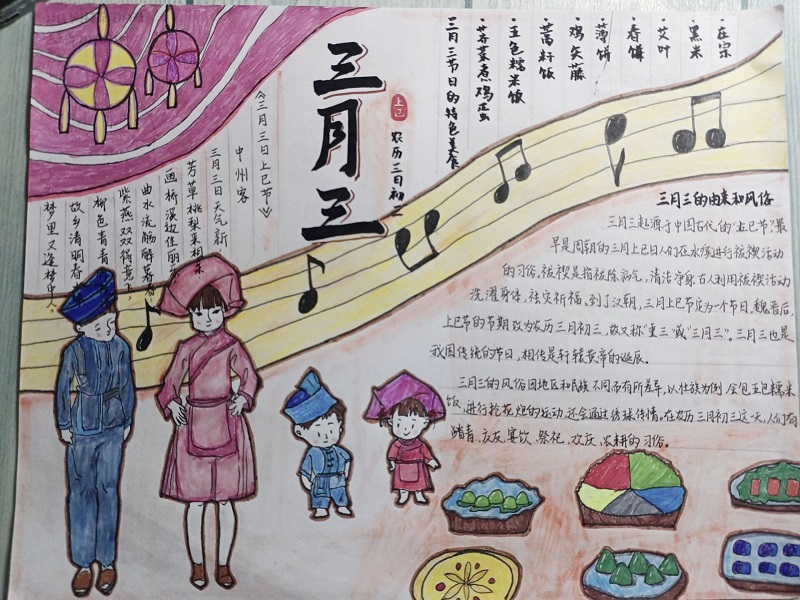 三月三
上巳
农历三日初
《三月三日上巳节》
中州客
三月三日天气新
芳草桃梨菜相
画桥溪边佳丽
曲水流觞解
紫燕双双
柳色青青
故乡清明春
梦里又逢梦中人。
三月三节日的特色美食
·荠菜煮鸡蛋
·五色糯米饭
·蒿籽饭
·鸡矢藤
·薄饼
·春饼
·艾叶
·黑米
三月三的由来和风俗
三月三起源于中国古代的"上巳节".最
早是周朝的三月上巳日人们在水滨进行祓禊活动
的习俗,祓禊是指祓除病气,清洁守身.古人利用祓禊活动
洗濯身体,祛灾祈福,到了汉朝,三月上巳定为一个节日.魏晋后,
上巳节的节期改为农历三月初三,故又称"重三"或"三月三"。三月三也是
我国传统的节日,相传是轩辕黄帝的诞辰。
三月三的风俗因地区和民族不同而有所差异,以壮族为例,会包五色糯米
饭,进行抢花炮的活动,还会通过绣球传情。在农历三月初三这一天,人们有
踏青、庆友、宴饮、祭祀、欢庆、农耕的习俗。